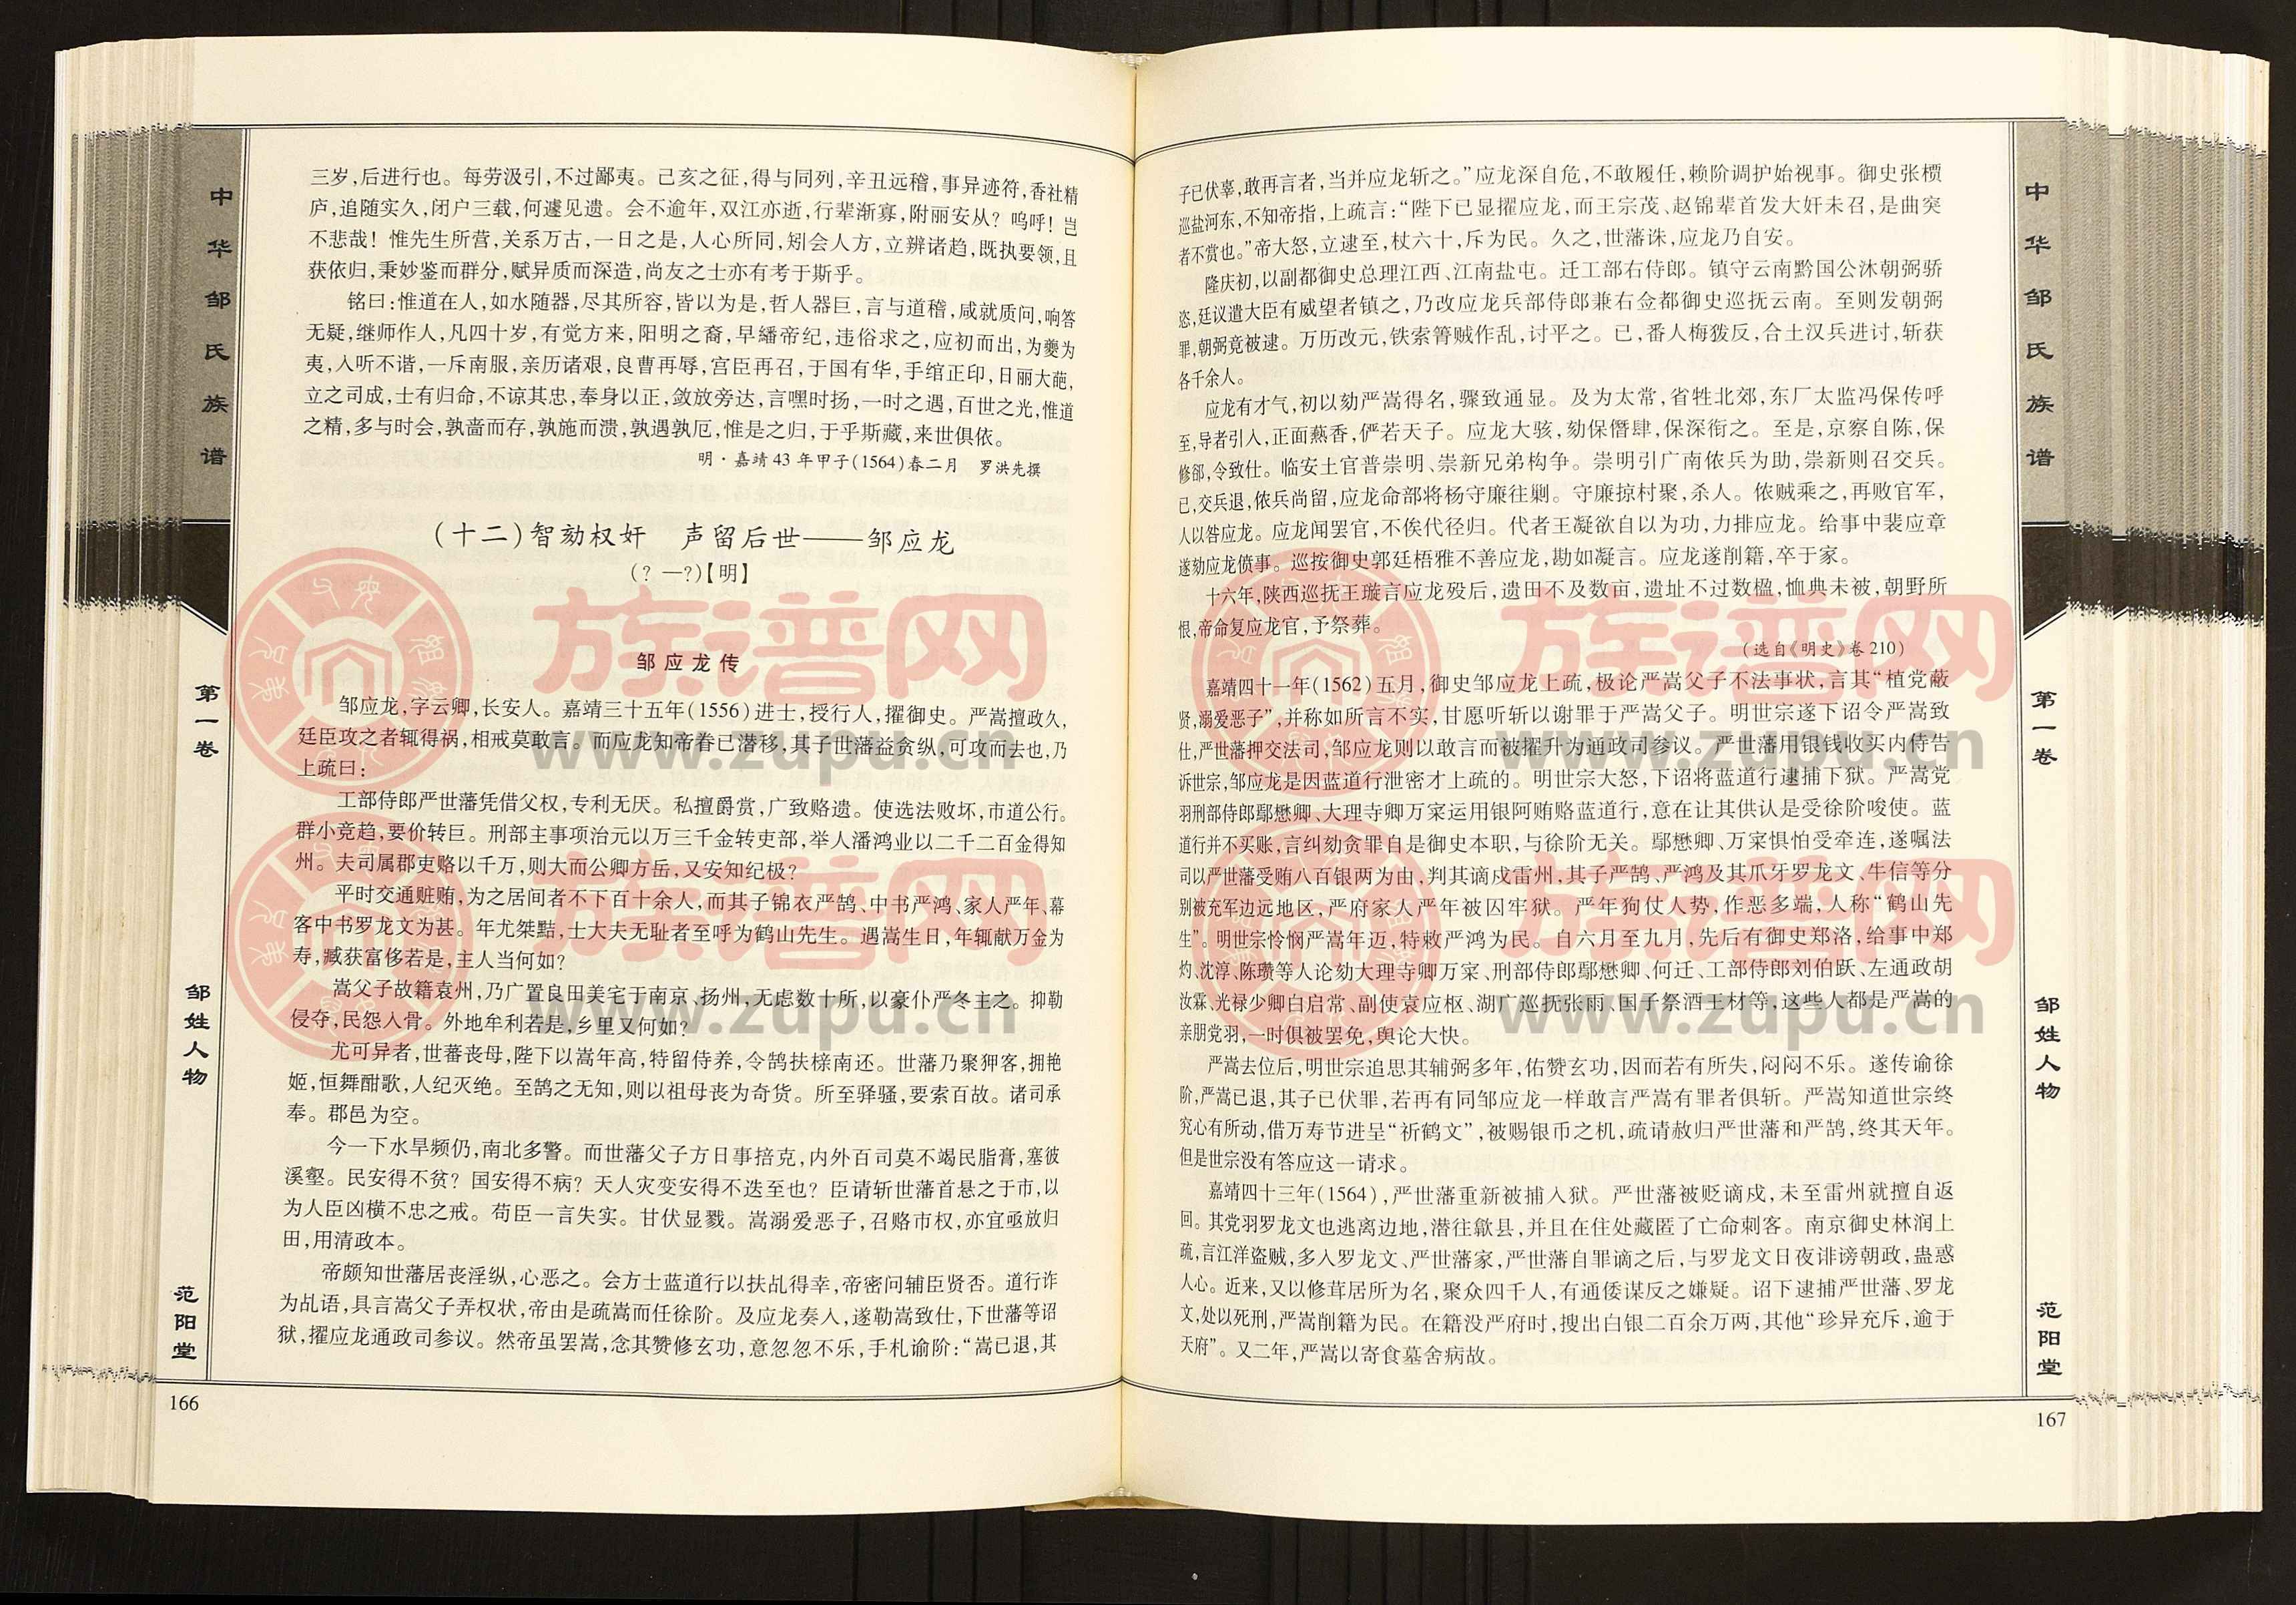 中华邹氏族谱
第一卷
邹姓人物
范阳堂
三岁,后进行也。每劳汲引,不过鄙夷。己亥之征,得与同列,辛丑远稽,事异迹符,香社精
庐,追随实久,闭户三载,何遽见遗。会不逾年,双江亦逝,行辈渐寡,附丽安从?呜呼!岂
不悲哉!惟先生所营,关系万古,一日之是,人心所同,矧会人方,立辨诸趋,既执要领,且
获依归,秉妙鉴而群分,赋异质而深造,尚友之士亦有考于斯乎。
铭曰:惟道在人,如水随器,尽其所容,皆以为是,哲人器巨,言与道稽,咸就质问,响答
无疑,继师作人,凡四十岁,有觉方来,阳明之裔,早繙帝纪,违俗求之,应初而出,为夔为
夷,入听不谐,一斥南服,亲历诸艰,良曹再辱,宫臣再召,于国有华,手绾正印,日丽大葩,
立之司成,士有归命,不谅其忠,奉身以正,敛放旁达,言嘿时扬,一时之遇,百世之光,惟道
之精,多与时会,孰啬而存,孰施而溃,孰遇孰厄,惟是之归,于乎斯藏,来世俱依。
明·嘉靖43年甲子(1564)春二月 罗洪先撰
(十二)智劾权奸 声留后世——邹应龙
(?—?)【明】
邹应龙传
邹应龙,字云卿,长安人。嘉靖三十五年(1556)进士,授行人,擢御史。严嵩擅政久,
廷臣攻之者辄得祸,相戒莫敢言。而应龙知帝眷已潜移,其子世藩益贪纵,可攻而去也,乃
上疏曰:
工部侍郎严世藩凭借父权,专利无厌。私擅爵赏,广致赂遗。使选法败坏,市道公行。
群小竞趋,要价转巨。刑部主事项治元以万三千金转吏部,举人潘鸿业以二千二百金得知
州。夫司属郡吏赂以千万,则大而公卿方岳,又安知纪极?
平时交通赃贿,为之居间者不下百十余人,而其子锦衣严鹄、中书严鸿、家人严年、幕
客中书罗龙文为甚。年尤桀黠,士大夫无耻者至呼为鹤山先生。遇嵩生日,年辄献万金为
寿,臧获富侈若是,主人当何如?
嵩父子故籍袁州,乃广置良田美宅于南京、扬州,无虑数十所,以豪仆严冬主之。抑勒
侵夺,民怨入骨。外地牟利若是,乡里又何如?
尤可异者,世蕃丧母,陛下以嵩年高,特留侍养,令鹄扶榇南还。世藩乃聚狎客,拥艳
姬,恒舞酣歌,人纪灭绝。至鹄之无知,则以祖母丧为奇货。所至驿骚,要索百故。诸司承
奉。郡邑为空。
今一下水旱频仍,南北多警。而世藩父子方日事掊克,内外百司莫不竭民脂膏,塞彼
溪壑。民安得不贫?国安得不病?天人灾变安得不迭至也?臣请斩世藩首悬之于市,以
为人臣凶横不忠之戒。苟臣一言失实。甘伏显戮。嵩溺爱恶子,召赂市权,亦宜亟放归
田,用清政本。
帝颇知世藩居丧淫纵,心恶之。会方士蓝道行以扶乩得幸,帝密问辅臣贤否。道行诈
为乩语,具言嵩父子弄权状,帝由是疏嵩而任徐阶。及应龙奏入,遂勒嵩致仕,下世藩等诏
狱,擢应龙通政司参议。然帝虽罢嵩,念其赞修玄功,意忽忽不乐,手札谕阶:“嵩已退,其
166
子已伏辜,敢再言者,当并应龙斩之。”应龙深自危,不敢履任,赖阶调护始视事。御史张槚
巡盐河东,不知帝指,上疏言:“陛下已显擢应龙,而王宗茂、赵锦辈首发大奸未召,是曲突
者不赏也。”帝大怒,立逮至,杖六十,斥为民。久之,世藩诛,应龙乃自安。
隆庆初,以副都御史总理江西、江南盐屯。迁工部右侍郎。镇守云南黔国公沐朝弼骄
恣,廷议遣大臣有威望者镇之,乃改应龙兵部侍郎兼右佥都御史巡抚云南。至则发朝弼
罪,朝弼竟被逮。万历改元,铁索箐贼作乱,讨平之。已,番人梅㺶反,合土汉兵进讨,斩获
各千余人。
应龙有才气,初以劾严嵩得名,骤致通显。及为太常,省牲北郊,东厂太监冯保传呼
至,导者引入,正面爇香,俨若天子。应龙大骇,劾保僭肆,保深衔之。至是,京察自陈,保
修郤,令致仕。临安土官普崇明、崇新兄弟构争。崇明引广南侬兵为助,崇新则召交兵。
已,交兵退,侬兵尚留,应龙命部将杨守廉往剿。守廉掠村聚,杀人。侬贼乘之,再败官军,
人以咎应龙。应龙闻罢官,不俟代径归。代者王凝欲自以为功,力排应龙。给事中裴应章
遂劾应龙偾事。巡按御史郭廷梧雅不善应龙,勘如凝言。应龙遂削籍,卒于家。
十六年,陕西巡抚王璇言应龙殁后,遗田不及数亩,遗址不过数楹,恤典未被,朝野所
恨,帝命复应龙官,予祭葬。
(选自《明史》卷210)
嘉靖四十一年(1562)五月,御史邹应龙上疏,极论严嵩父子不法事状,言其“植党蔽
贤,溺爱恶子”,并称如所言不实,甘愿听斩以谢罪于严嵩父子。明世宗遂下诏令严嵩致
仕,严世藩押交法司,邹应龙则以敢言而被擢升为通政司参议。严世藩用银钱收买内侍告
诉世宗,邹应龙是因蓝道行泄密才上疏的。明世宗大怒,下诏将蓝道行逮捕下狱。严嵩党
羽刑部侍郎鄢懋卿、大理寺卿万寀运用银阿贿赂蓝道行,意在让其供认是受徐阶唆使。蓝
道行并不买账,言纠劾贪罪自是御史本职,与徐阶无关。鄢懋卿、万寀惧怕受牵连,遂嘱法
司以严世藩受贿八百银两为由,判其谪戍雷州,其子严鹄、严鸿及其爪牙罗龙文、牛信等分
别被充军边远地区,严府家人严年被囚牢狱。严年狗仗人势,作恶多端,人称“鹤山先
生”。明世宗怜悯严嵩年迈,特敕严鸿为民。自六月至九月,先后有御史郑洛,给事中郑
灼、沈淳、陈瓒等人论劾大理寺卿万寀、刑部侍郎鄢懋卿、何迁、工部侍郎刘伯跃、左通政胡
汝霖、光禄少卿白启常、副使袁应枢、湖广巡抚张雨、国子祭酒王材等,这些人都是严嵩的
亲朋党羽,一时俱被罢免,舆论大快。
严嵩去位后,明世宗追思其辅弼多年,佑赞玄功,因而若有所失,闷闷不乐。遂传谕徐
阶,严嵩已退,其子已伏罪,若再有同邹应龙一样敢言严嵩有罪者俱斩。严嵩知道世宗终
究心有所动,借万寿节进呈“祈鹤文”,被赐银币之机,疏请赦归严世藩和严鹄,终其天年。
但是世宗没有答应这一请求。
嘉靖四十三年(1564),严世藩重新被捕入狱。严世藩被贬谪戍,未至雷州就擅自返
回。其党羽罗龙文也逃离边地,潜往歙县,并且在住处藏匿了亡命刺客。南京御史林润上
疏,言江洋盗贼,多入罗龙文、严世藩家,严世藩自罪谪之后,与罗龙文日夜诽谤朝政,蛊惑
人心。近来,又以修茸居所为名,聚众四千人,有通倭谋反之嫌疑。诏下逮捕严世藩、罗龙
文,处以死刑,严嵩削籍为民。在籍没严府时,搜出白银二百余万两,其他“珍异充斥,逾于
天府”。又二年,严嵩以寄食墓舍病故。
中华邹氏族谱
第一卷
邹姓人物
范阳堂
167
族谱网
www.zupu.cn
族谱网
www.zupu.cn
族谱网
www.zupu.cn
族谱网
www.zupu.cn